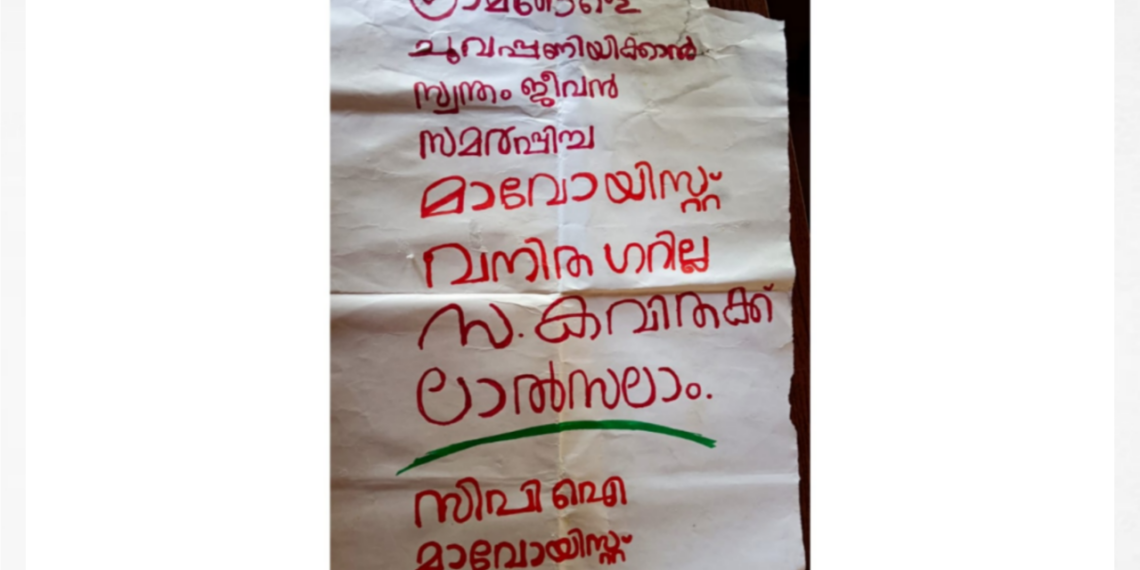 ചുവപ്പണിയിക്കാൻ
സ്വന്തം ജീവൻ
സമർപ്പിച്ച
മാവോയിസ്റ്റ്
വനിത ഗറില്ല
സ. കവിതക്ക്
ലാൽസലാം.
സിപിഐ
മാവോയിസ്റ്റ്